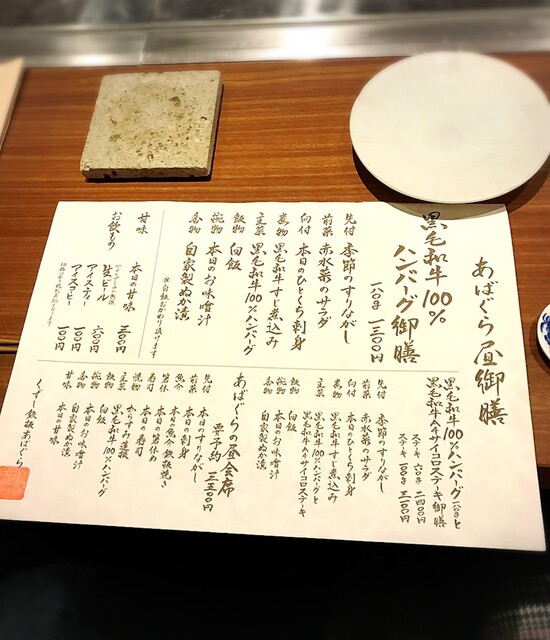 あばぐら昼御膳
黒毛和牛100%
ハンバーグ御膳
一八〇g 一三〇〇円
先付 季節のすりながし
前菜 赤水菜のサラダ
向付 本日のひとくち刺身
煮物 黒毛和牛すじ煮込み
主菜 黒毛和牛100%ハンバーグ
飯物 白飯
椀物 本日のお味噌汁
香物 自家製ぬか漬
※白飯おかわり頂けます
甘味 本日の甘味 三〇〇円
お飲もの
生ビール 六〇〇円
アイスティー 一〇〇円
アイスコーヒー 一〇〇円
黒毛和牛100%ハンバーグ一八〇gと
黒毛和牛ヘレサイコロステーキ御膳
ステーキ 六〇g 二四〇〇円
ステーキ 一〇〇g 三一〇〇円
先付 季節のすりながし
前菜 赤水菜のサラダ
向付 本日のひとくち刺身
煮物 黒毛和牛すじ煮込み
主菜 黒毛和牛100%ハンバーグと
黒毛和牛ヘレサイコロステーキ
飯物 白飯
椀物 本日のお味噌汁
香物 自家製ぬか漬
あばぐらの昼会席
要予約 三五〇〇円
先付 本日のすりながし
前菜 本日の刺身
魚介 本日の魚介鉄板焼き
箸休 本日の箸休め
寿司 本日の寿司
焼物 からすみ大根
主菜 黒毛和牛100%ハンバーグ
飯物 白飯
椀物 本日のお味噌汁
香物 自家製ぬか漬
甘味 本日の甘味
くずし鉄板あばぐら